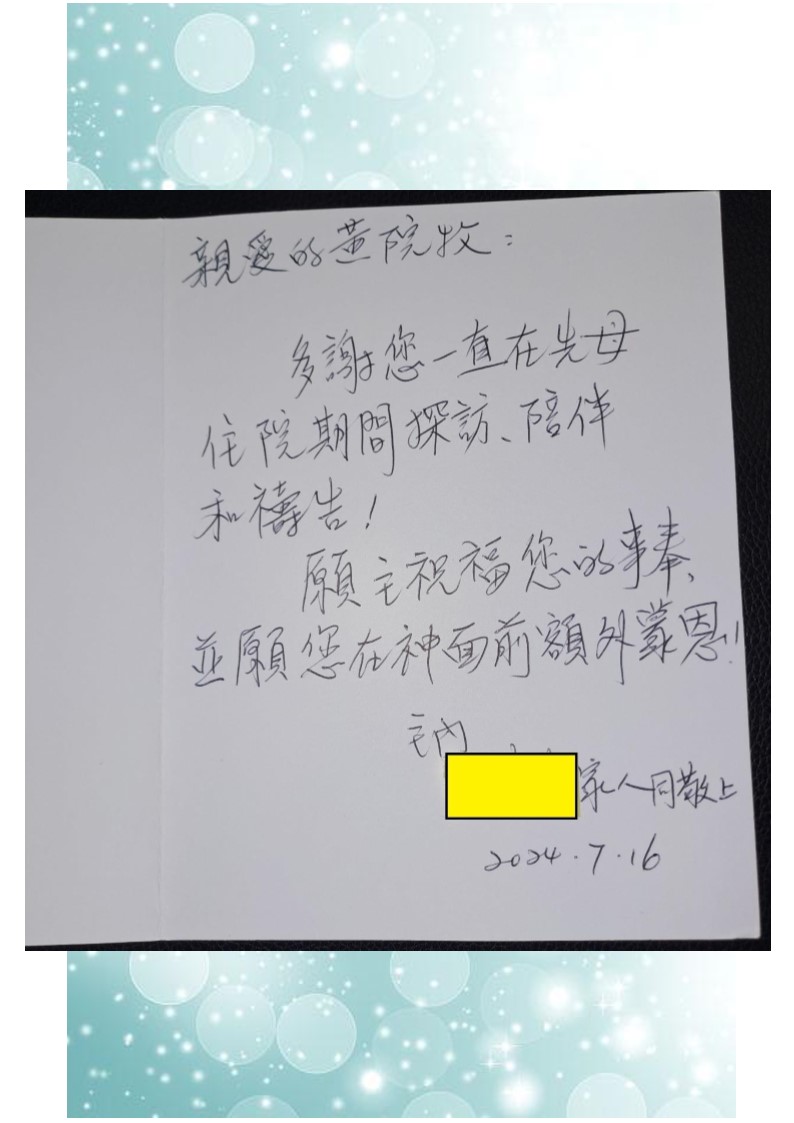 親愛的黃院牧：
多謝您一直在先母
住院期間探訪、陪伴
和禱告！
願主祝福您的事奉，
並願您在神面前額外蒙恩！
主內
家人同敬上
2024.7.16